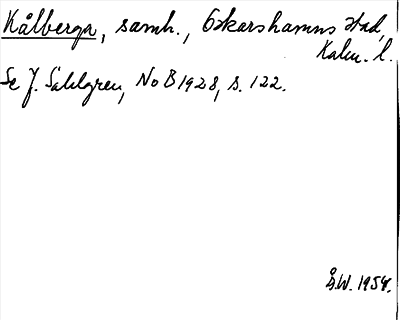 Kålberga, samh., Oskarshamns stad,
Kalm. l.
Se J. Sahlgren, NoB 1928, s. 122.
Å.W. 1954.